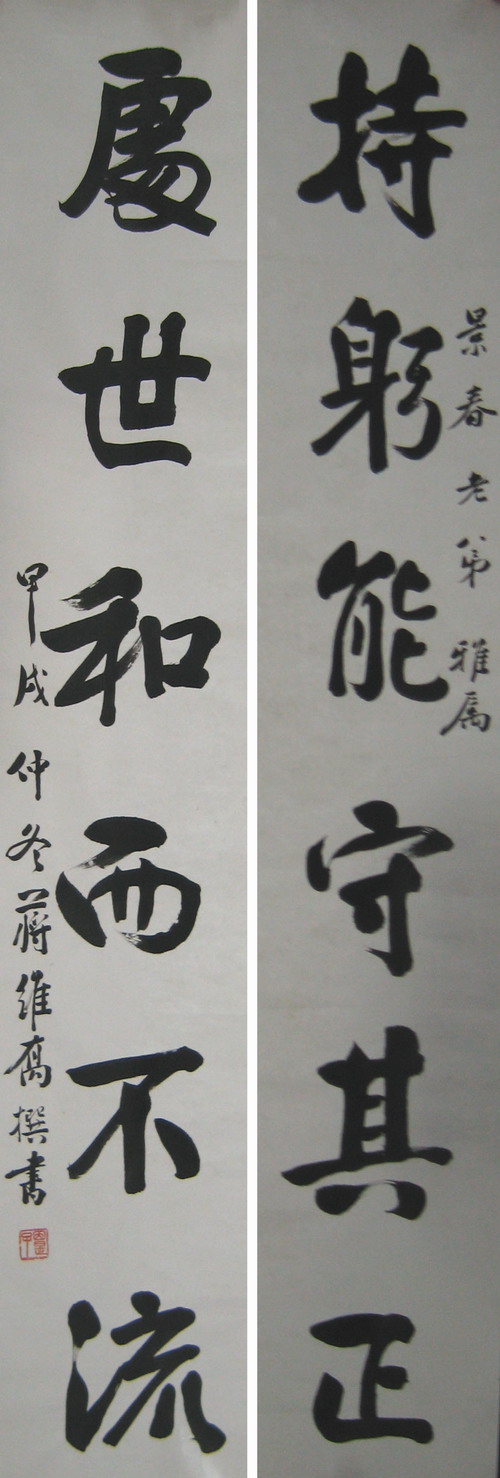 景春老弟雅属
持躬能守其正
處世和而不流
甲戌仲冬蔣維喬撰書